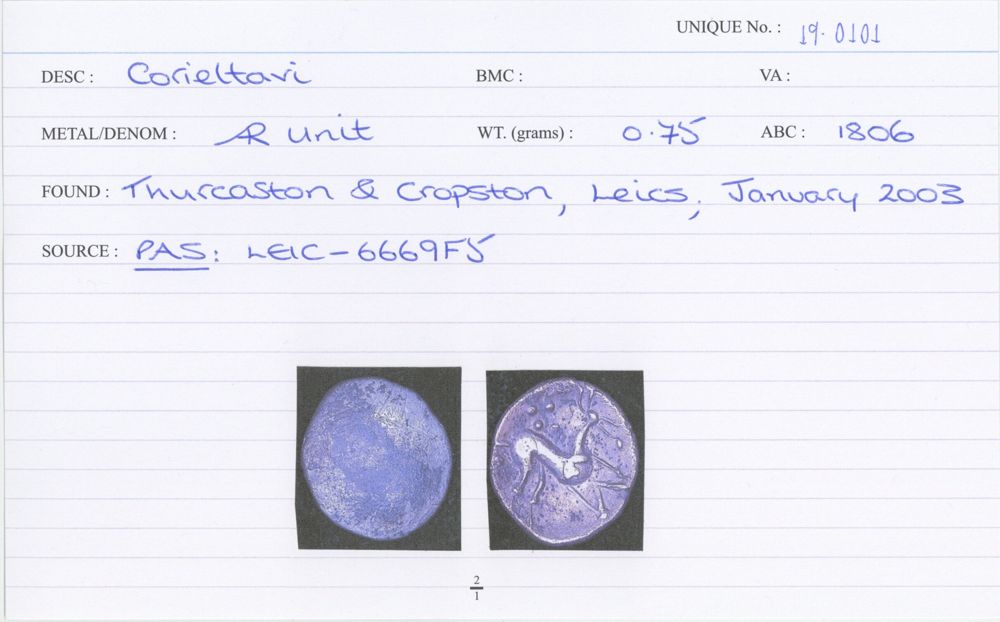 UNIQUE No. : 19.0101
DESC : Corieltavi BMC : VA :
METAL/DENOM : AR unit WT. (grams) : 0.75 ABC : 1806
FOUND : Thurcaston & Cropston, Leics, January 2003
SOURCE : PAS: LEIC-6669F5
2
1